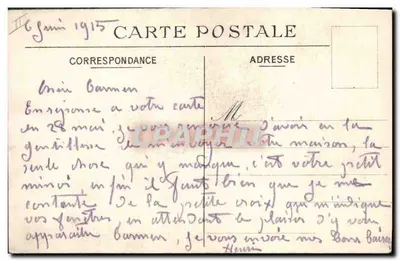 6 Juin 1915
CARTE POSTALE
CORRESPONDANCE
ADRESSE
M
Carmen
En réponse a votre carte
du 28 mai, je vous d'avoir eu la
gentillesse de m'envoyer votre maison, la
seule chose qui y manque, c'est votre petit
minoi, enfin il faut bien que je me
contente de la petite croix qui m'indique
vos fenêtres, en attendant le plaisir d'y voir
apparaitre Carmen, je vous envoie mes bons baisers
Henri